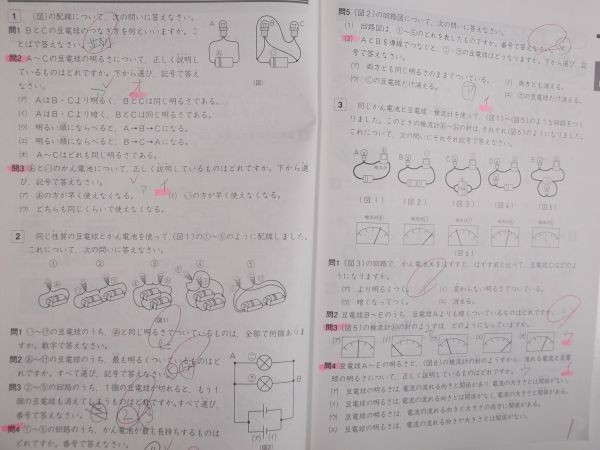 1 (図)の配線について、次の問いに答えなさい。
問1 BとCの豆電球のつなぎ方を何といいますか。こ
とばで答えなさい。
問2 A〜Cの豆電球の明るさについて、正しく説明し
ているものはどれですか。下から選び、記号で答え
なさい。
(ア) AはB・Cより明るく、BとCは同じ明るさである。
(イ) AはB・Cより暗く、BとCは同じ明るさである。
(ウ) 明るい順にならべると、A→B→Cになる。
(エ) 明るい順にならべると、B→C→Aになる。
(オ) A〜Cはどれも同じ明るさである。
問3 あといのかん電池について、正しく説明しているものはどれですか。下から選
び、記号で答えなさい。
(ア) あの方が早く使えなくなる。
(イ) いの方が早く使えなくなる。
(ウ) どちらも同じくらいで使えなくなる。
A
B
C
(図)
2 同じ性質の豆電球とかん電池を使って、(図1)の①〜⑤のように配線しました。
これについて、次の問いに答えなさい。
① ② ③ ④ ⑤
(図1)
問1
のうち、あと同じ明るさでついているものは、全部で何個ありま
すか。数字で答えなさい。
問2
の豆電球のうち、最も明るくついているものはど
れですか。すべて選び、記号で答えなさい。
問3
の回路のうち、1個の豆電球が切れると、もう1
個の豆電球も消えてしまうものはどれですか。すべて選び、
番号で答えなさい。
問4 ①〜⑤の回路のうち、かん電池が最も長持ちするものは
どれですか。番号で答えなさい。
A
B
(ア) (イ)
問5 (図2)の回路図について、次の問いに答えなさい。
(1) 回路図は、①〜⑤のどれを表したものですか。番号で答えなさい。
(2) AとBを導線でつなぐと、
の豆電球はどうなりますか。下から選び、記
号で答えなさい。
(ア) 両方とも同じ明るさのままでついている。
(イ) 両方とも消える。
(ウ)
の豆電球だけ消える。
(エ)
の豆電球だけ消える。
3 同じかん電池と豆電球・検流計を使って、(図1)〜(図5)のような回路をつく
りました。このときの検流計
の針は、それぞれ(図6)のようになりました。
これについて、次の問いにそれぞれ記号で答えなさい。
A B C D E
検流計
(図1) (図2) (図3) (図4) (図5)
検流計 検流計 検流計 検流計
(図6)
問1 (図3)の回路で、かん電池
をはずすと、はずす前と比べて、豆電球Cはどのよ
うになりますか。
(ア) より明るくつく。
(イ) 変わらない明るさでついている。
(ウ) 暗くなってつく。
(エ) 消える。
問2 豆電球B〜Eのうち、豆電球Aよりも暗くついているものはどれですか。
問3 (図5)の検流計
の針のようすは、どのようになっていますか。
(ア) (イ) (ウ) (エ) (オ)
問4 豆電球A〜Eの明るさと、(図6)の検流計の針のようすから、流れる電流と豆電
球の明るさについて、正しく説明しているものはどれですか。
(ア) 豆電球の明るさは、電流の流れる向きと関係があり、電流の大きさとは関係がない。
(イ) 豆電球の明るさは、電流の流れる向きと関係がなく、電流の大きさと関係がある。
(ウ) 豆電球の明るさは、電流の流れる向きと大きさの両方に関係がある。
(エ) 豆電球の明るさは、電流の流れる向きや大きさとは関係がない。